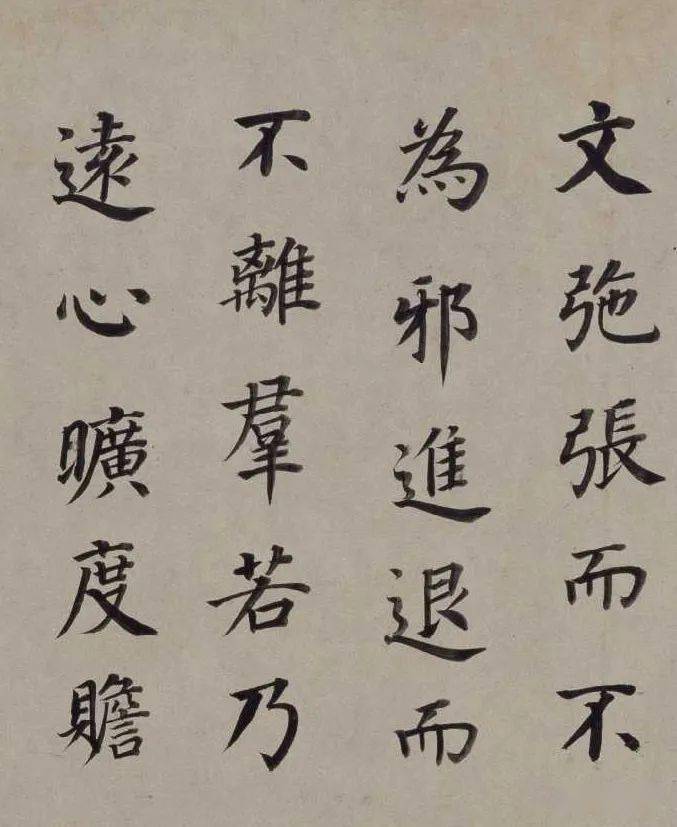 文弛張而不
為邪進退而
不離羣若乃
遠心曠度贍